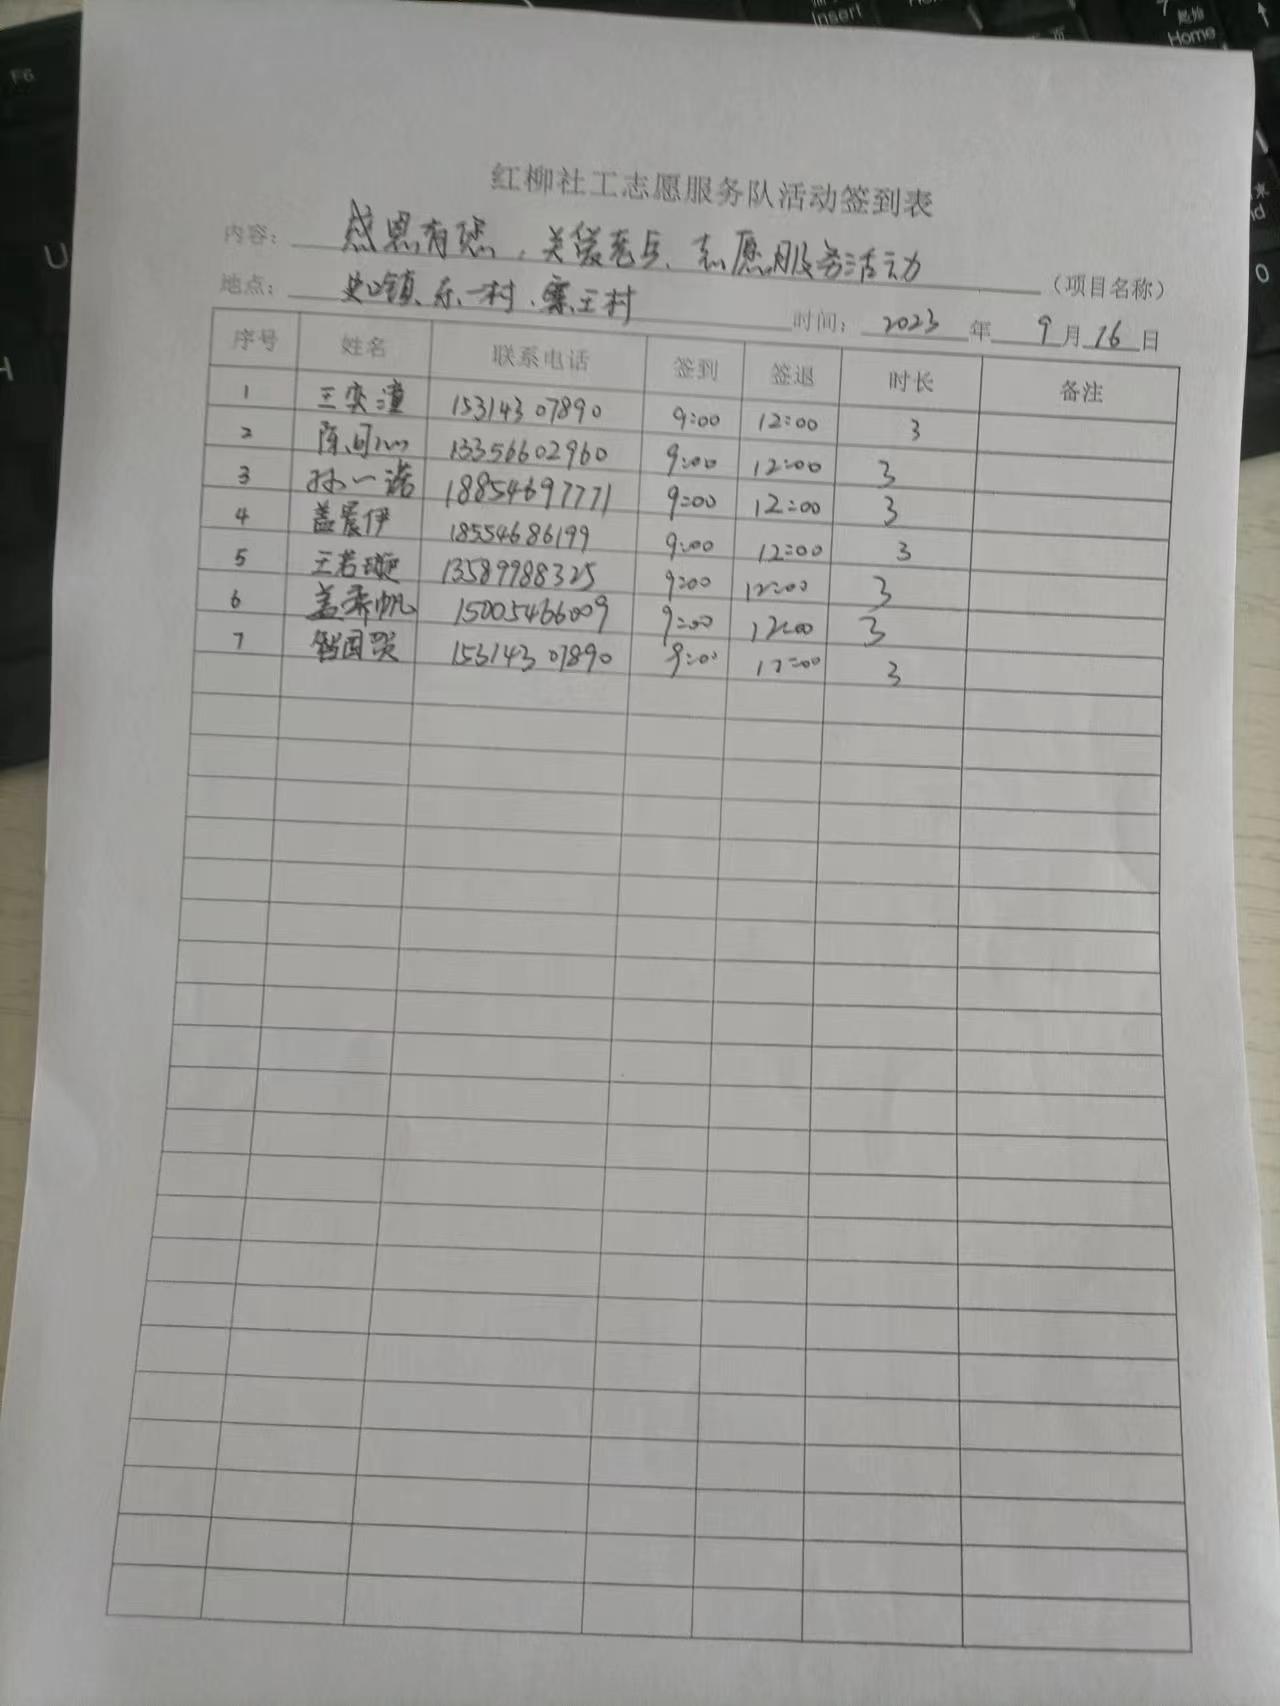 Insert
7 起始
Home
F6
U
红柳社工志愿服务队活动签到表
内容： 感恩有您，关爱老兵、志愿服务活动 （项目名称）
地点： 史口镇、东一村、寨王村 时间： 2023 年 9 月 16 日
序号 姓名 联系电话 签到 签退 时长 备注
1 王奕潼 15314307890 9:00 12:00 3
2 陈 13356602960 9:00 12:00 3
3 孙一诺 18854697771 9:00 12:00 3
4 盖晨伊 18554686199 9:00 12:00 3
5 王若璇 13589988325 9:00 12:00 3
6 盖 帆 15005466009 9:00 12:00 3
7 国 15314307890 9:00 12:00 3